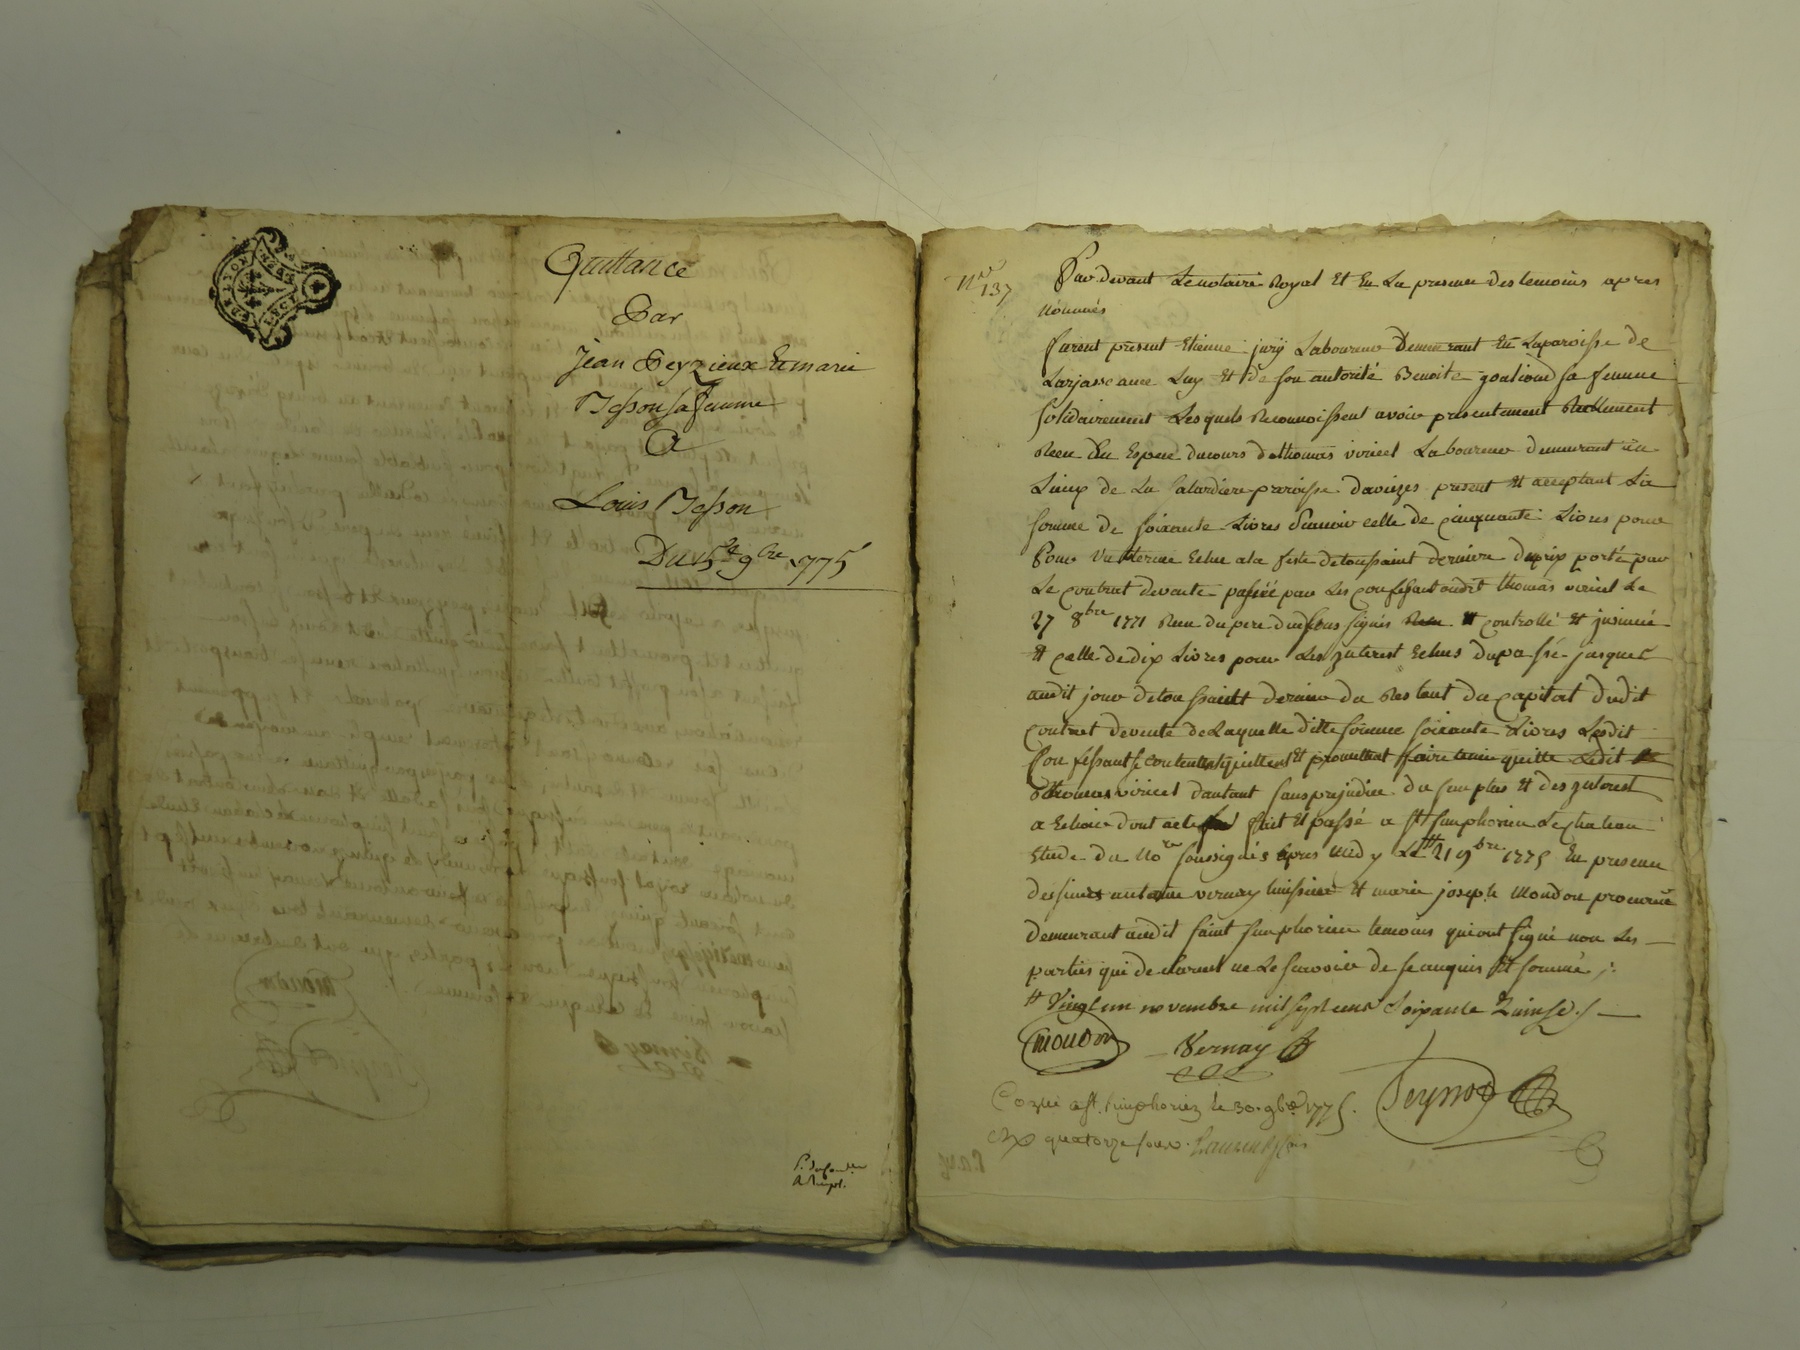 Quittance
Par
Jean Peyzieux Et marie
Besson sa femme
A
Louis Besson
Du 15e 9bre 1775
No 137
Par devant Le notaire Royal Et En La presence des temoins apres
Nommés
furent présent Etienne jury Laboureur Demeurant En Laparoisse de
Larjasse avec Luy Et de son autorité Benoite goulioud sa femme
solidairement Lesquels Reconnoissent avoir presentement Reellement
Receu En Espece du cours de thomas viricel Laboureur demeurant au
Lieux de La paroisse daveizes present Et acceptant La
somme de soixante Livres Scavoir celle de cinquante Livres pour
Pour un terme Echu a la feste de toussaint derniere du prix porté par
Le contrat de vente passéé par Les confessant audit thomas viricel Le
27 8bre 1771 Receu du pere du sous signés controllé Et jnsinué
Et celle de dix Livres pour Les jnterest Echus du passé jusques
audit jour de tou ssaintt dernier du Restant du capital dudit
contrat de vente de Laquelle ditte somme soixante Livres Lesdit
Confessant se contentent quittent Et promettent faire tenir quitte Ledit
thomas viricel dautant sans prejudice du surplus Et des jnterest
a Echoir dont acte fait Et passé a st simphorien Le chateau
Etude du Nore soussignés apres midy Le 21 9bre 1775 En presence
des sieurs antoine vernay huissier Et marie joseph Mondon procureur
demeurant audit saint simphorien temoins qui ont signé non Les
parties qui declarent ne Le scavoir de ce enquis Et sommé
Vingt un novembre mil sept cens soixante quinse
Mondon
Vernay
Peynot
Controlé a st simphorien le 30 9bre 1775
quatorze sous